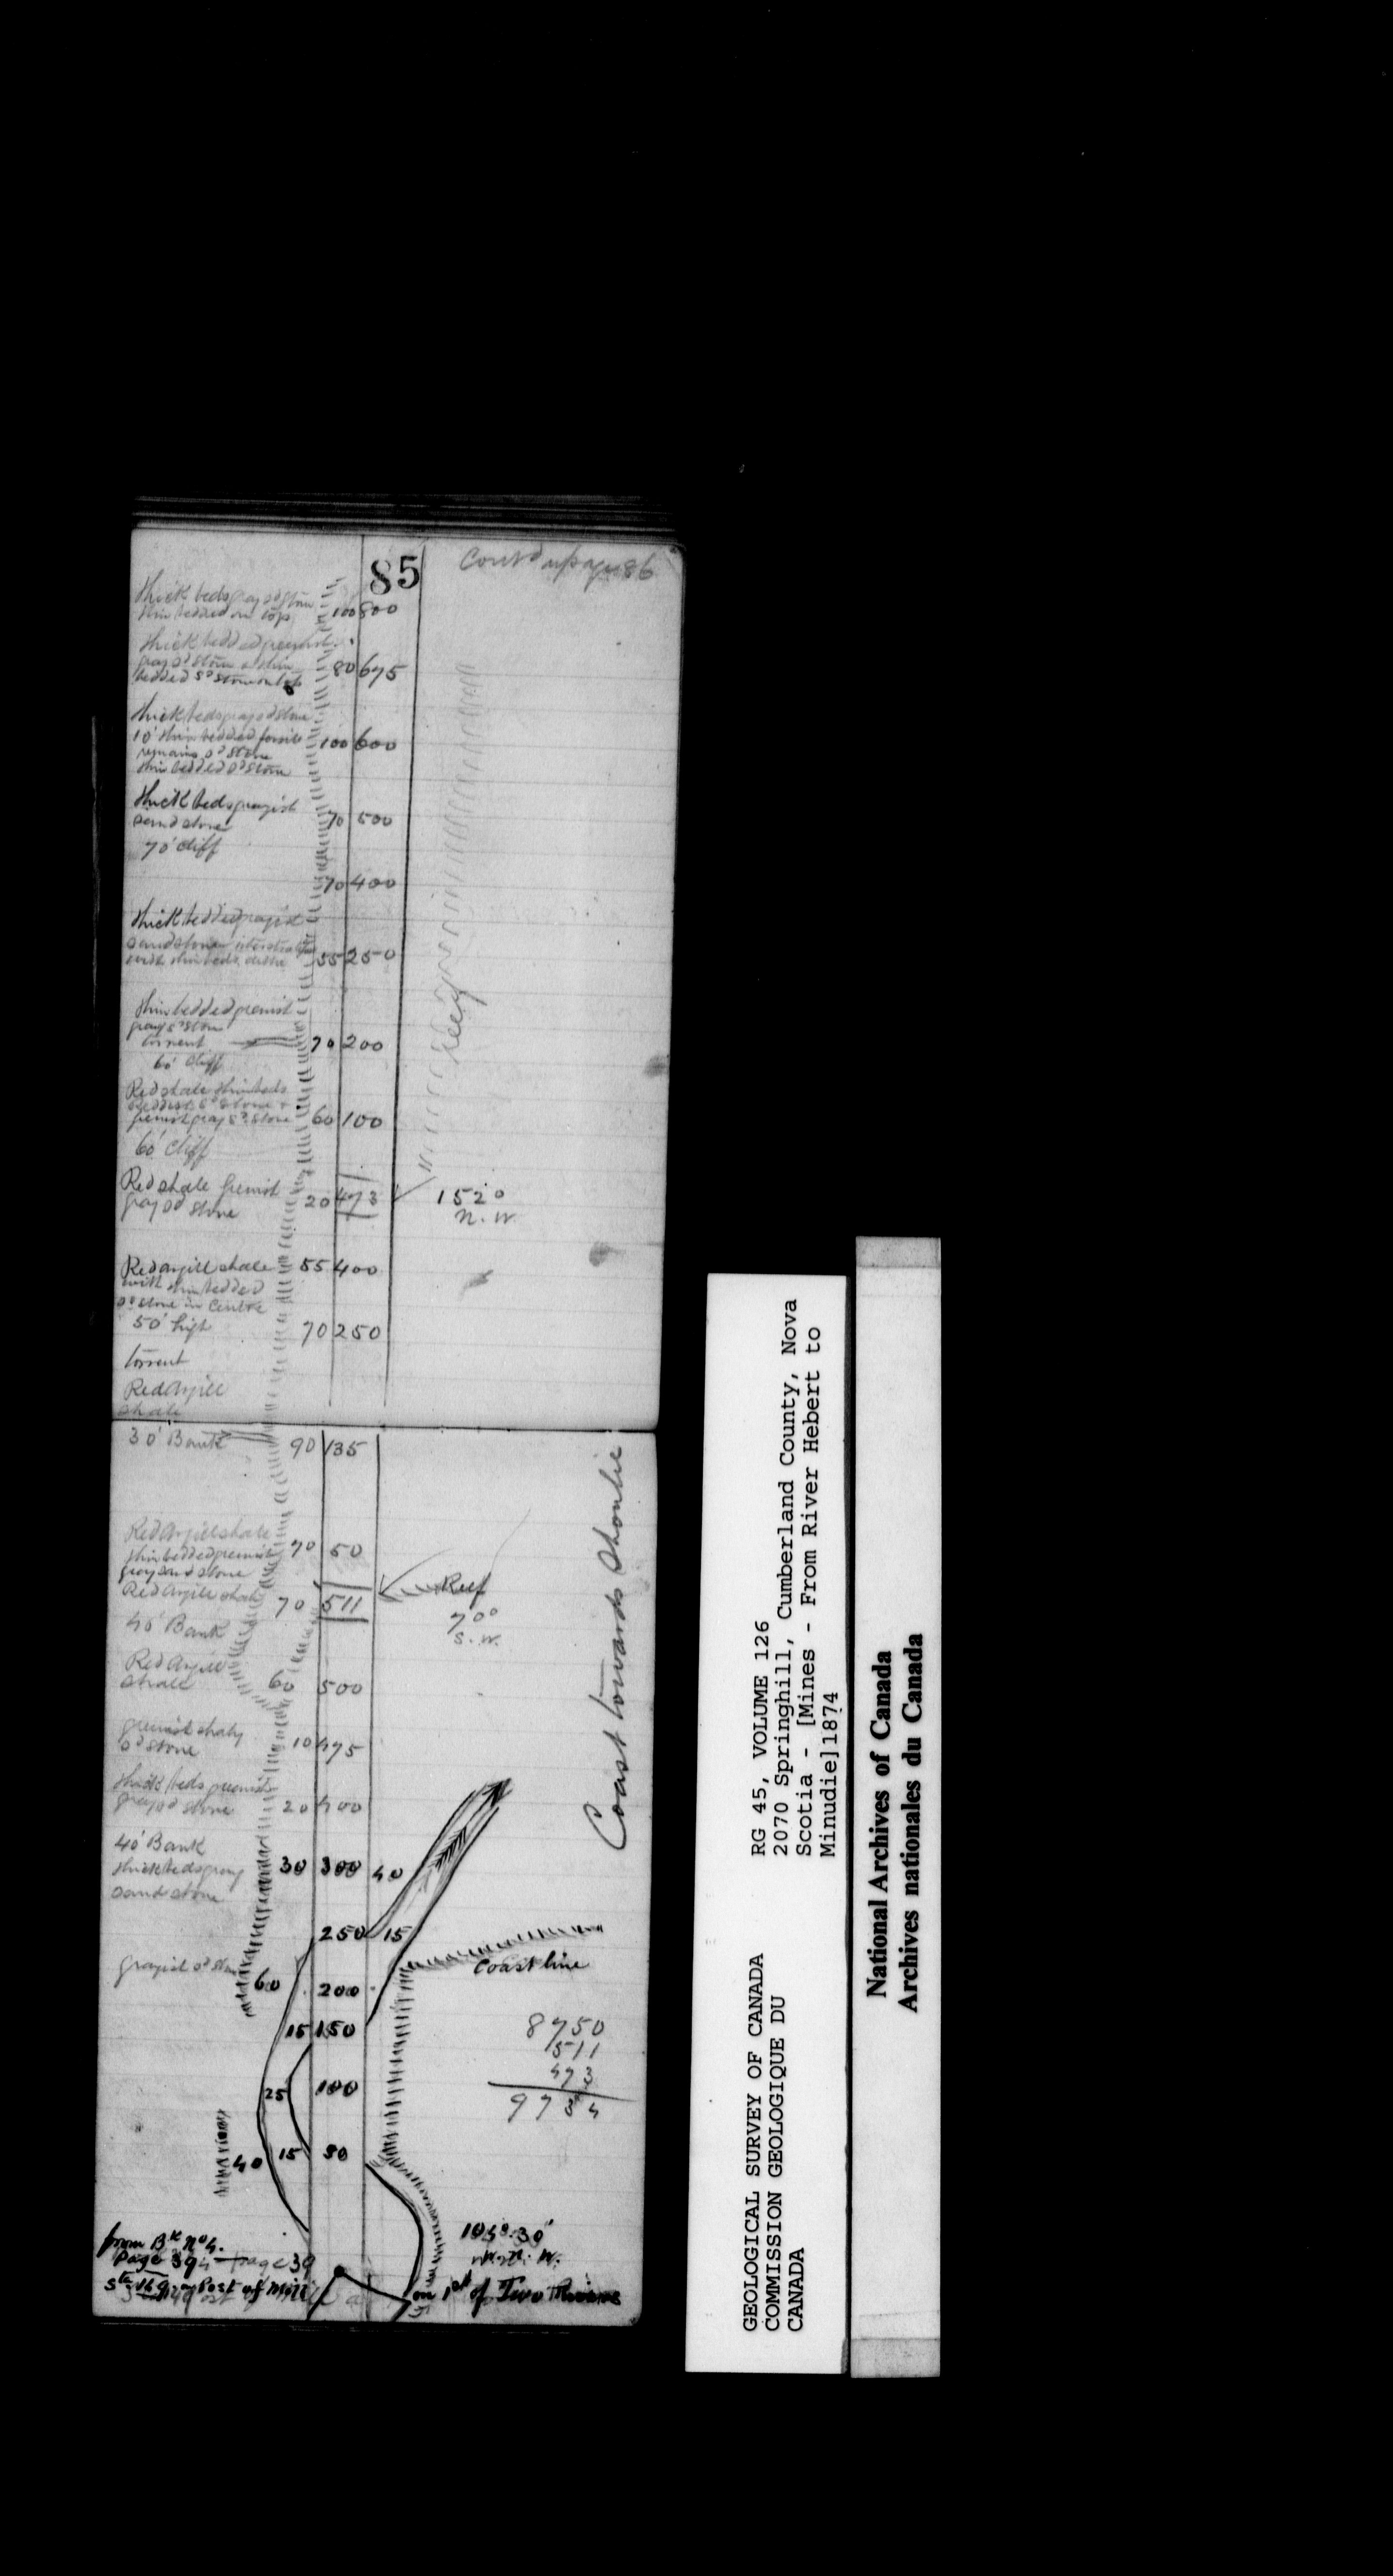 85
Contd up page 86
thick beds gray sd stone
thin bedded on top 100 800
thick bedded greenish
gray sd stone & thin 80 675
bedded sd stone on top
thick beds gray sd stone
10' thin bedded fossile 100 600
remains sd stone
thin bedded sd stone
thick beds grayish
sand stone 70 500
70' cliff
70 400
thick bedded grayish
sandstone interstratified
with thin beds 55 250
thin bedded greenish
gray sd stone
torrent 70 200
60' cliff
Red shale thin beds
reddish sd stone &
greenish gray sd stone 60 100
60' cliff
Red shale greenish 20 473 152°
gray sd stone N. W.
Red argill shale 55 400
with thin bedded
sd stone in centre
50' high 70 250
torrent
Red Argill
shale
30' Bank 90 135
Red Argill shale
thin bedded greenish 70 50
gray sand stone
Red Argill shale 70 511 Reef
40' Bank 70°
S. W.
Red Argill
shale 60 500
greenish shaly
sd stone 10 475
thick beds greenish
gray sd stone 20 400
40' Bank
thick beds gray 30 300 40
sand stone
250 15
Coast line
grayish sd stone 60 200
15 150
25 100
40 15 50
8750
511
473
9734
Coast towards Shoulie
from Bk No 4.
Page 39
105°.30'
N. W.
Sta 169 on Post of Mill on 1st of Two Rivers
GEOLOGICAL SURVEY OF CANADA
COMMISSION GEOLOGIQUE DU
CANADA
RG 45, VOLUME 126
2070 Springhill, Cumberland County, Nova
Scotia - [Mines - From River Hebert to
Minudie]1874
National Archives of Canada
Archives nationales du Canada